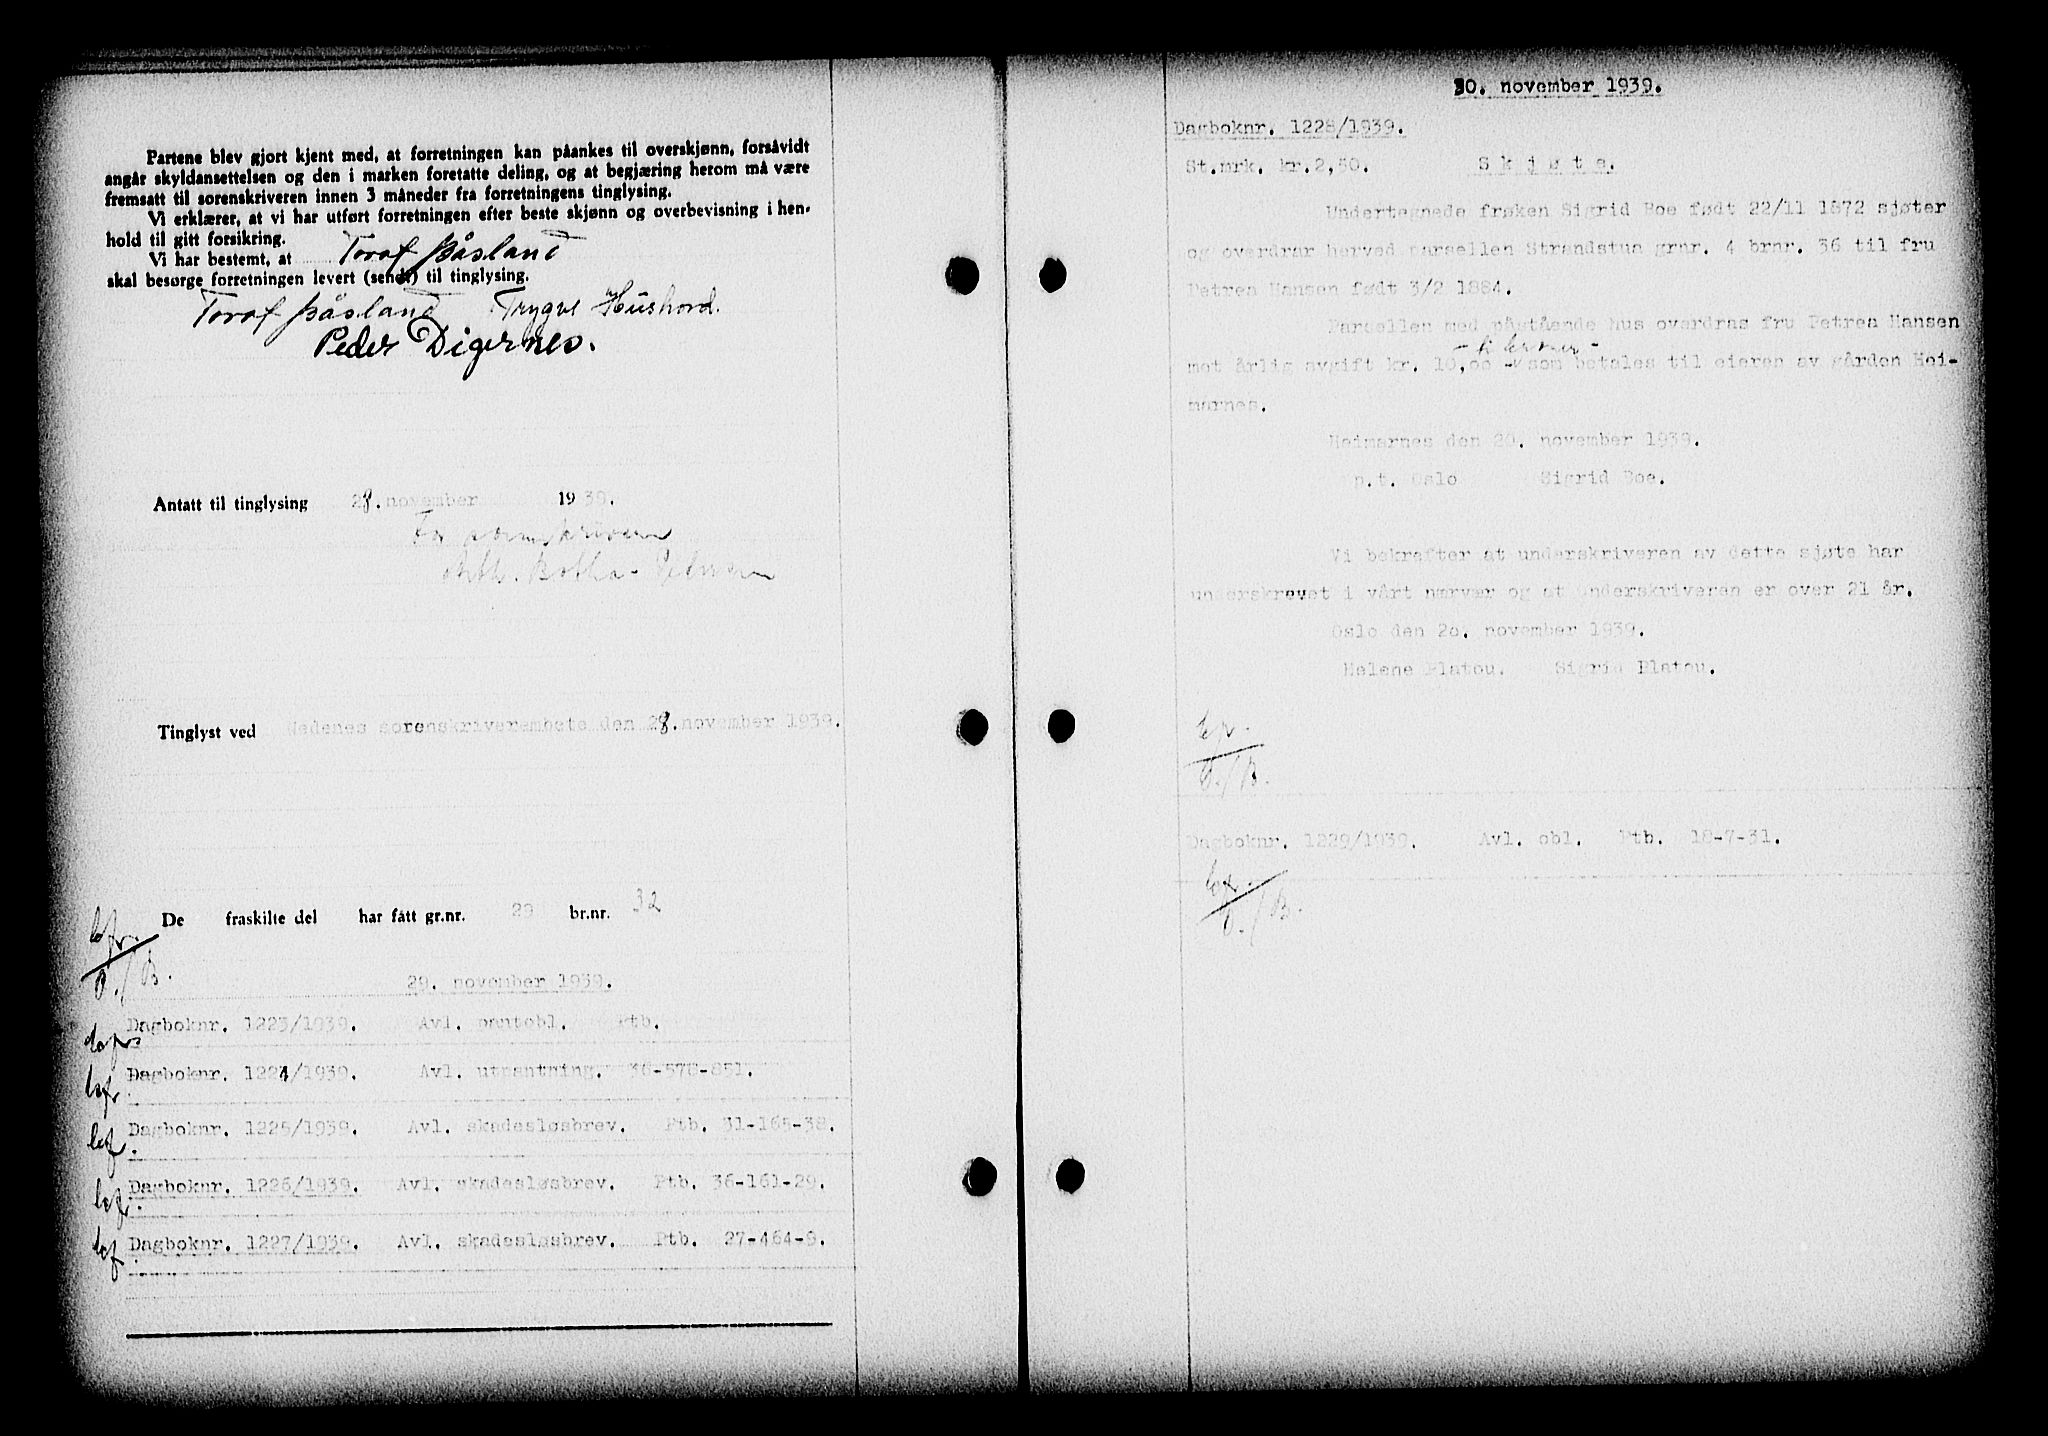 Partene blev gjort kjent med, at forretningen kan påankes til overskjønn, forsåvidt
angår skyldansettelsen og den i marken foretatte deling, og at begjæring herom må være
fremsatt til sorenskriveren innen 3 måneder fra forretningens tinglysing.
Vi erklærer, at vi har utført forretningen efter beste skjønn og overbevisning i hen-
hold til gitt forsikring.
Vi har bestemt, at Torof Påsland
skal besørge forretningen levert (sendt) til tinglysing.
Torof Påsland Trygve Hushord.
Peder Digernes.
Antatt til tinglysing 28. november 1939.
For sorenskriveren
Botha-Petersen
Tinglyst ved Nedenes sorenskriverembete den 28. november 1939.
De fraskilte del har fått gr.nr. 29 br.nr. 32
29. november 1939.
Dagboknr. 1223/1939. Avl. pantobl. Ptb.
Dagboknr. 1224/1939. Avl. utpantning. 36-578-851.
Dagboknr. 1225/1939. Avl. skadesløsbrev. Ptb. 31-165-38.
Dagboknr. 1226/1939. Avl. skadesløsbrev. Ptb. 36-161-29.
Dagboknr. 1227/1939. Avl. skadesløsbrev. Ptb. 27-464-9.
30. november 1939.
Dagboknr. 1228/1939.
St.mrk. kr.2,50. Skjøte.
Undertegnede frøken Sigrid Boe født 22/11 1872 sjøter
og overdrar herved parsellen Strandstua grnr. 4 brnr. 36 til fru
Petrea Hansen født 3/2 1884.
Parsellen med påstående hus overdras fru Petrea Hansen
- ti kroner -
mot årlig avgift kr. 10,00 som betales til eieren av gården Hei-
marnes.
Heimarnes den 20. november 1939.
p.t. Oslo Sigrid Boe.
Vi bekrefter at underskriveren av dette sjøte har
underskrevet i vårt nærvær og at underskriveren er over 21 år.
Oslo den 20. november 1939.
Helene Platou. Sigrid Platou.
Dagboknr. 1229/1939. Avl. obl. Ptb. 18-7-31.